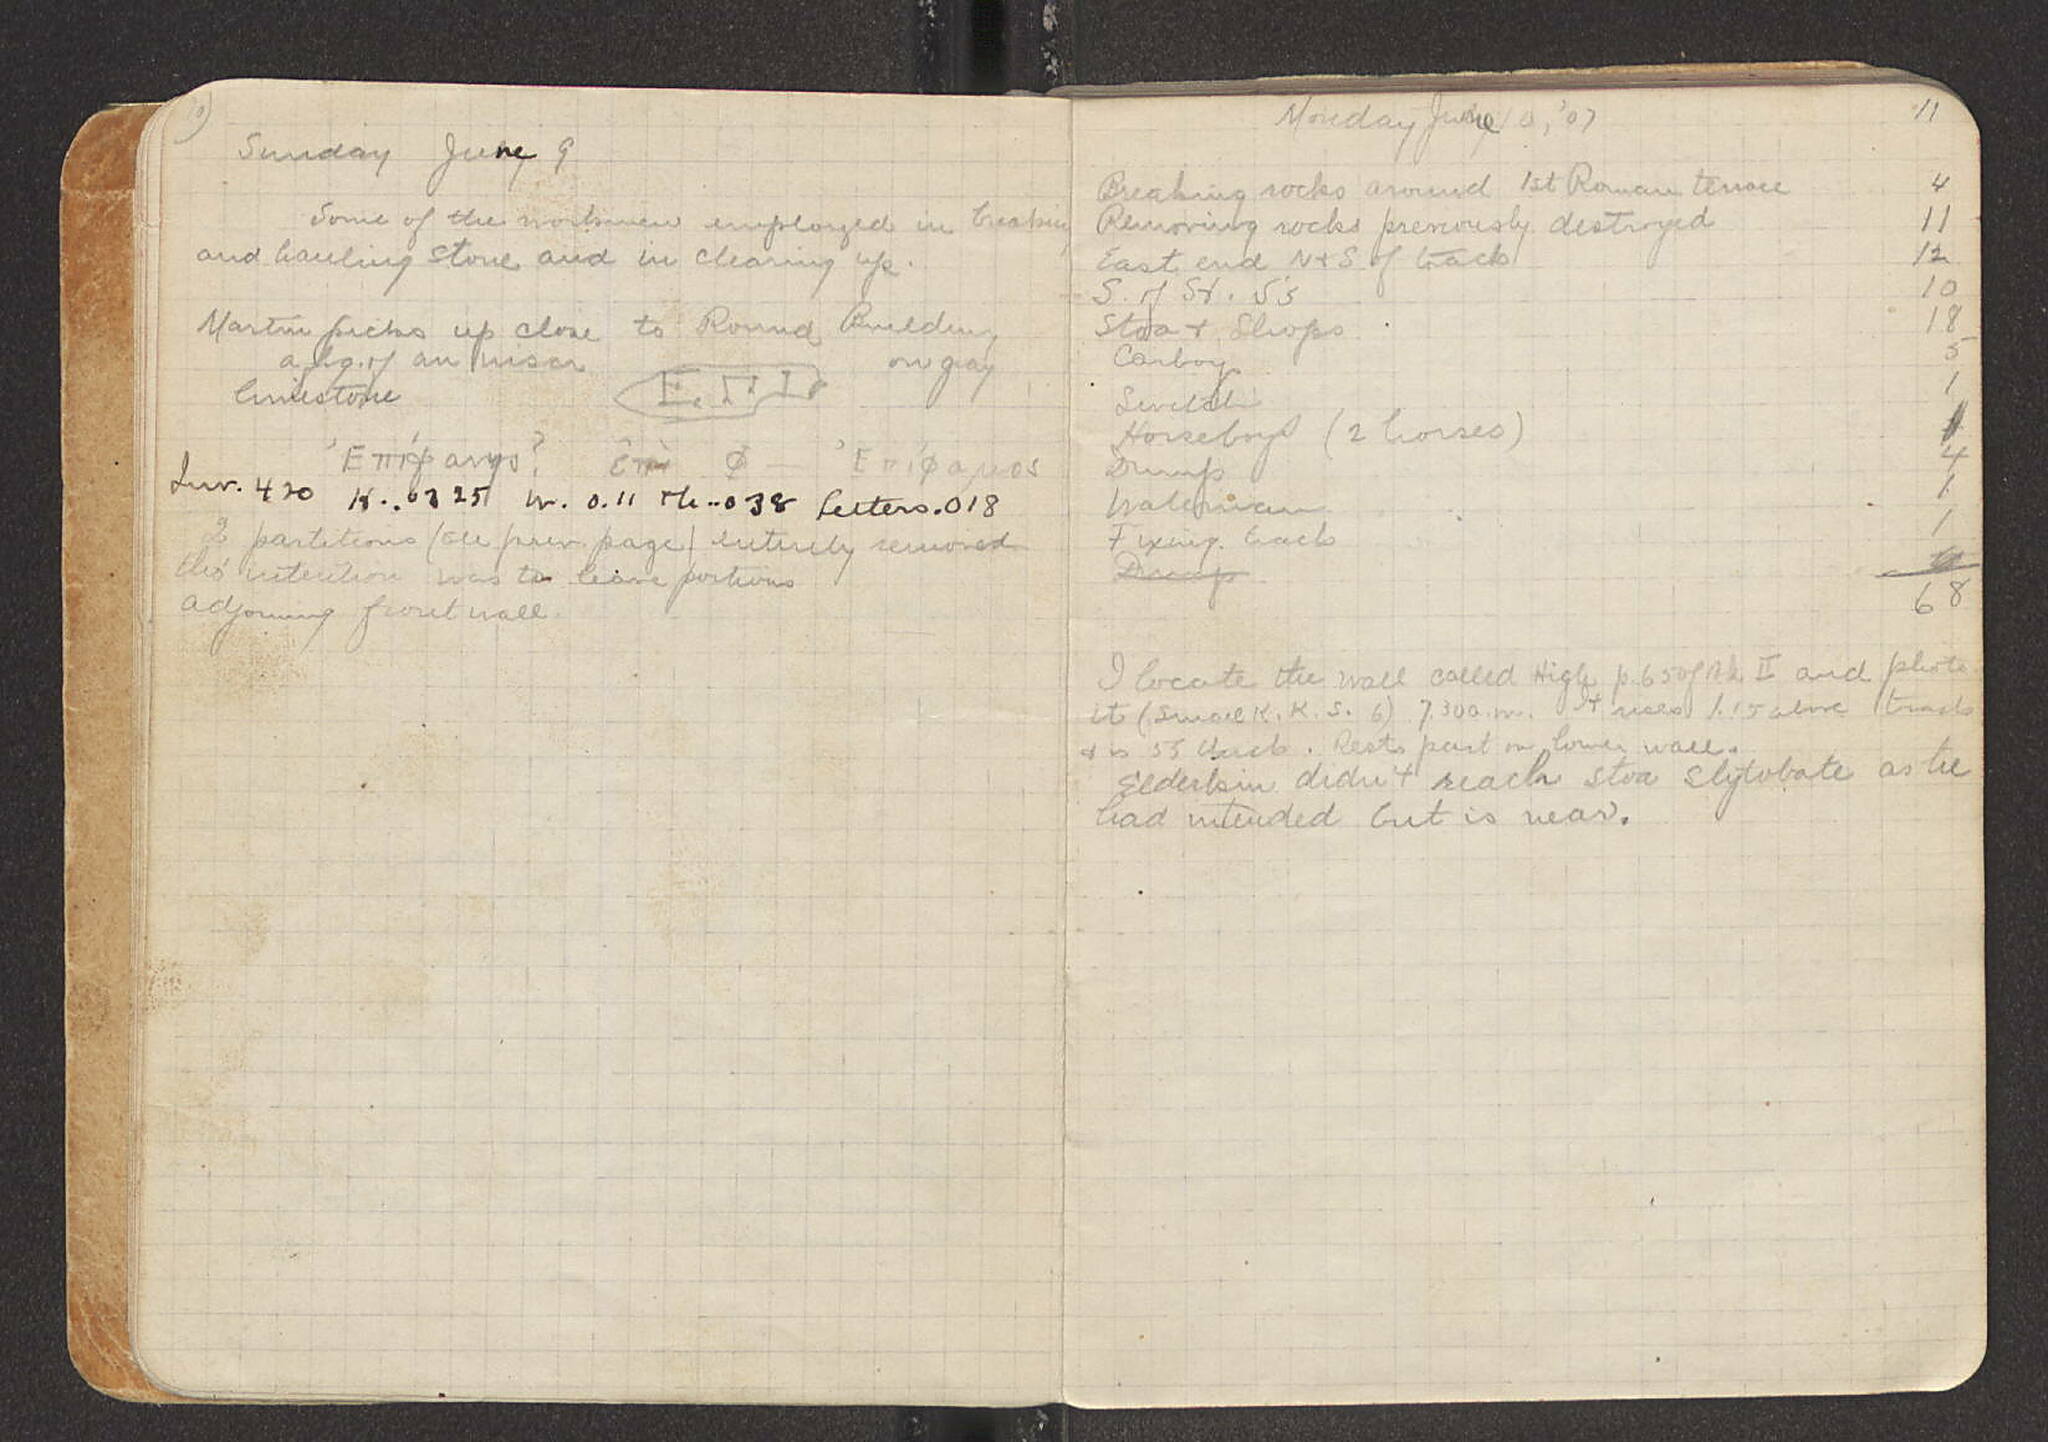 Sunday June 9
Some of the workmen employed in breaking
and hauling stone and in clearing up.
Martin picks up close to Round Building
a frg. of an inscr on gray
limestone
Ε.Π.Ι
Ἐπίφανης? ἐπὶ Φ — Ἐπίφαμος
Inv. 420 H. .0325 W. 0.11 Th. .038 letters .018
2 partitions (see prev. page) entirely removed
tho' intention was to leave portions
adjoining front wall.
Monday June 10, '07
11
Breaking rocks around 1st Roman terrace 4
Removing rocks previously destroyed 11
East end N + S of track 12
S. of St. 10
Stoa + Shops 18
Carboy 5
Switch 1
Horseboys (2 horses)
Dump 4
Waterman 1
Fixing track 1
Dump
68
I locate the wall called High p. 65 of Nk II and photo
it (Small K. K. S. 6) 7.300 m. It rises 1.15 above track
+ is 55 thick. Rests part on lower wall.
Elderkin didn't reach stoa stylobate as he
had intended but is near.